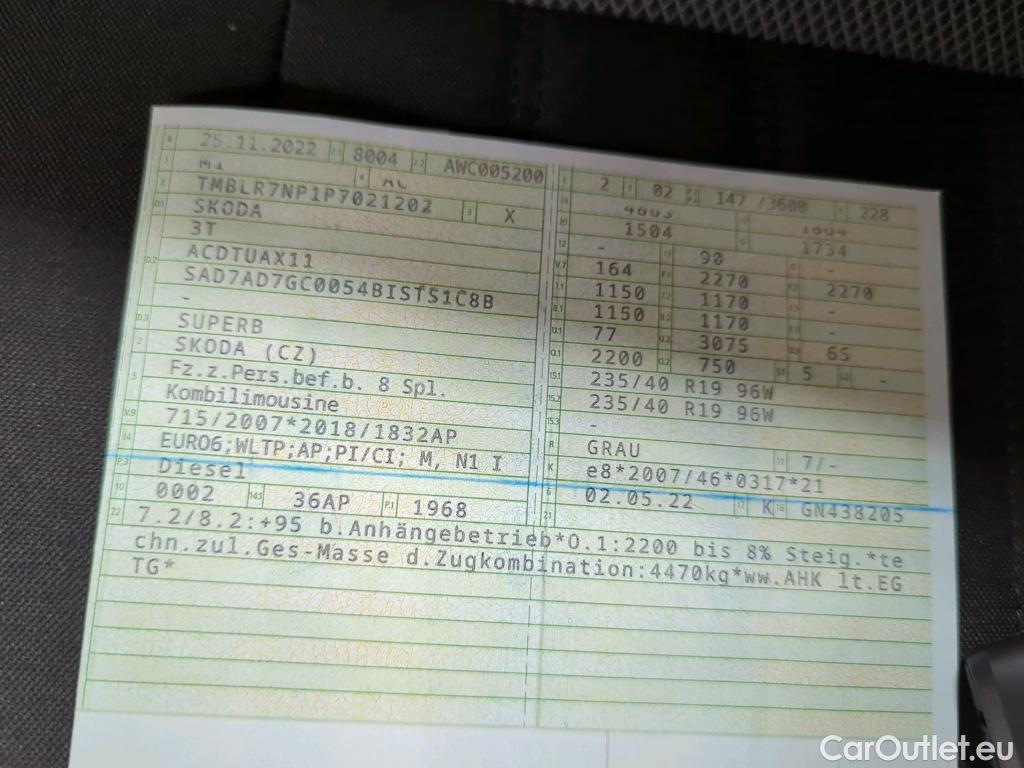 25.11.2022 8004 AWC005200
M1
TMBLR7NP1P7021202 X
SKODA
3T
ACDTUAX11
SAD7AD7GC0054BISTS1C8B
-
SUPERB
SKODA (CZ)
Fz.z.Pers.bef.b. 8 Spl.
Kombilimousine
715/2007*2018/1832AP
EURO6;WLTP;AP;PI/CI; M, N1 I
Diesel
0002 36AP 1968
2 02 147 /3600 228
1504 1734
- 90 -
164 2270 2270
1150 1170 -
1150 1170 -
77 3075 65
2200 750 5 -
235/40 R19 96W
235/40 R19 96W
-
GRAU 7/-
e8*2007/46*0317*21
02.05.22 K GN438205
7.2/8.2:+95 b.Anhängebetrieb*O.1:2200 bis 8% Steig.*te
chn.zul.Ges-Masse d.Zugkombination:4470kg*ww.AHK lt.EG
TG*
CarOutlet.eu